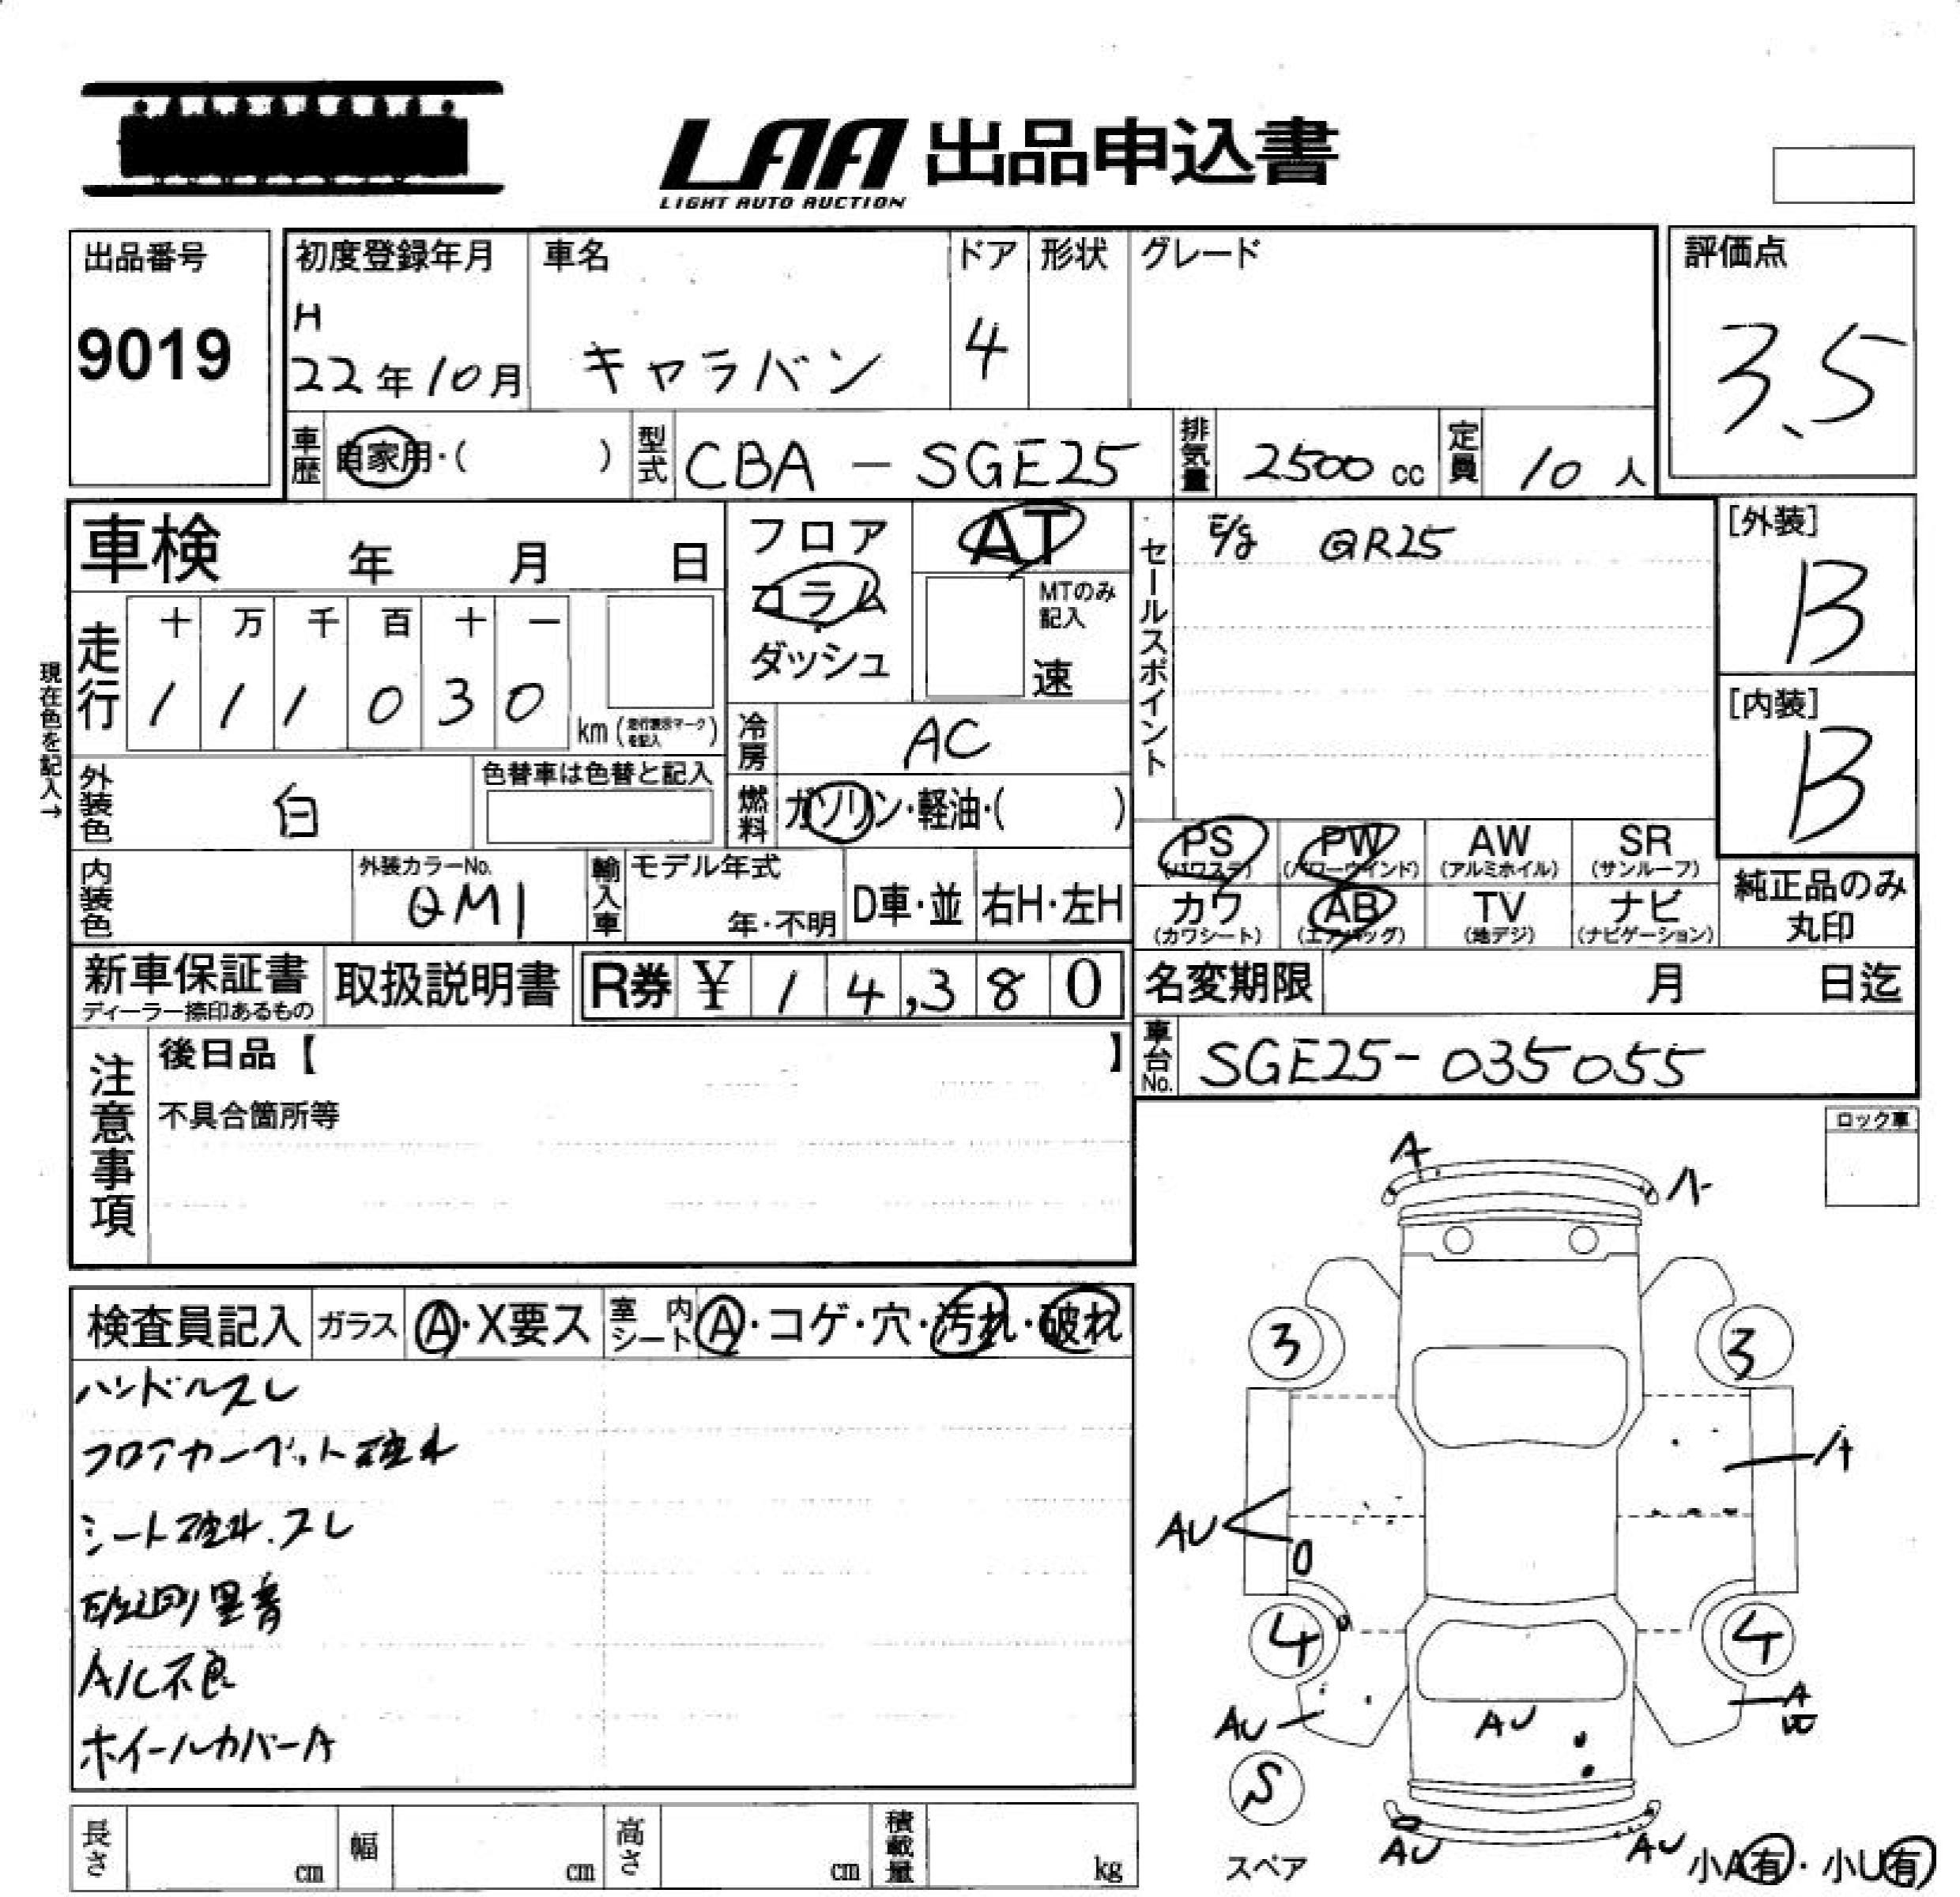 LAA 出品申込書
LIGHT AUTO AUCTION
出品番号
9019
初度登録年月
H
22年10月
車名
キャラバン
ドア
4
形状
グレード
評価点
3.5
車歴
自家用・( )
型式
CBA - SGE25
排気量
2500 cc
定員
10 人
車検 年 月 日
フロア
コラム
ダッシュ
AT
MTのみ記入
速
セールスポイント
E/g QR25
[外装]
B
[内装]
B
現在色を記入→
走行
十 万 千 百 十 一
1 1 1 0 3 0
km (走行表示マークを記入)
冷房
AC
外装色
白
色替車は色替と記入
燃料
ガソリン・軽油・( )
PS
(パワステ)
PW
(パワーウインド)
AW
(アルミホイル)
SR
(サンルーフ)
カワ
(カワシート)
AB
(エアバッグ)
TV
(地デジ)
ナビ
(ナビゲーション)
純正品のみ
丸印
内装色
外装カラーNo.
QM1
輸入車
モデル年式
年・不明
D車・並
右H・左H
新車保証書
ディーラー捺印あるもの
取扱説明書
R券 ¥ 14,380
名変期限 月 日迄
車台No.
SGE25-035055
注意事項
後日品【 】
不具合箇所等
ロック車
検査員記入
ガラス
A・X要ス
室内シート
A・コゲ・穴・汚れ・破れ
ハンドルスレ
フロアカーペット破れ
シート破れ.スレ
E/g廻り異音
A/C不良
ホイールカバーA
A
A
3
3
A
AU
4
4
AU
AU
A
S
スペア
AU
AU
小A有・小U有
長さ cm
幅 cm
高さ cm
積載量 kg